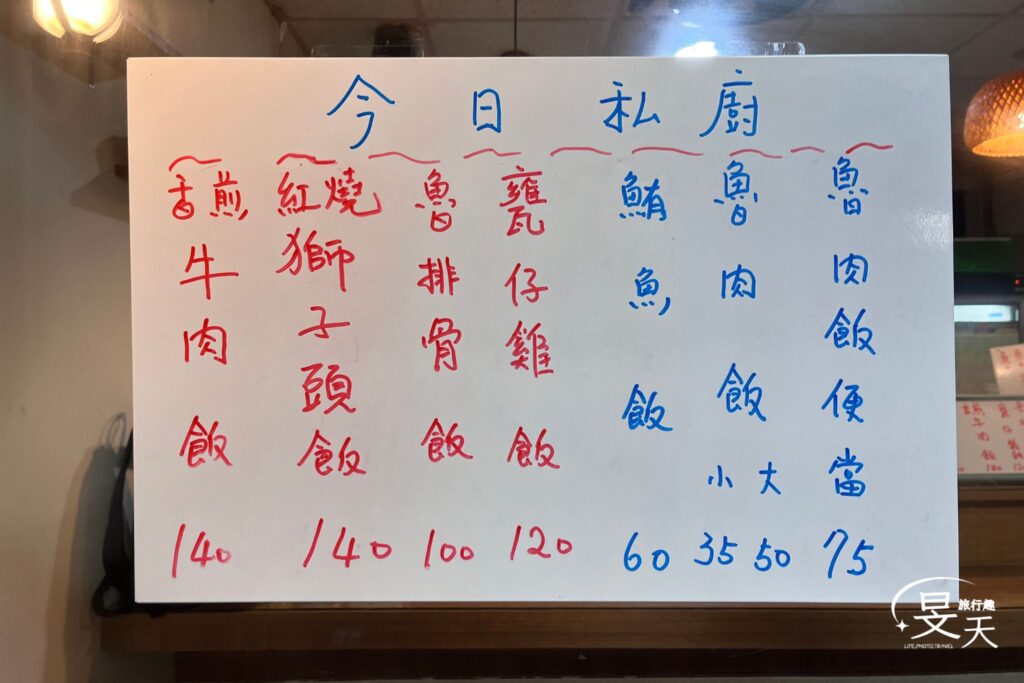 今日私廚
魯肉飯便當 75
魯肉飯 小 35 大 50
鮪魚飯 60
甕仔雞飯 120
魯排骨飯 100
紅燒獅子頭飯 140
香煎牛肉飯 140
旅行趣
旻天
LIFE,PHOTO,TRAVEL